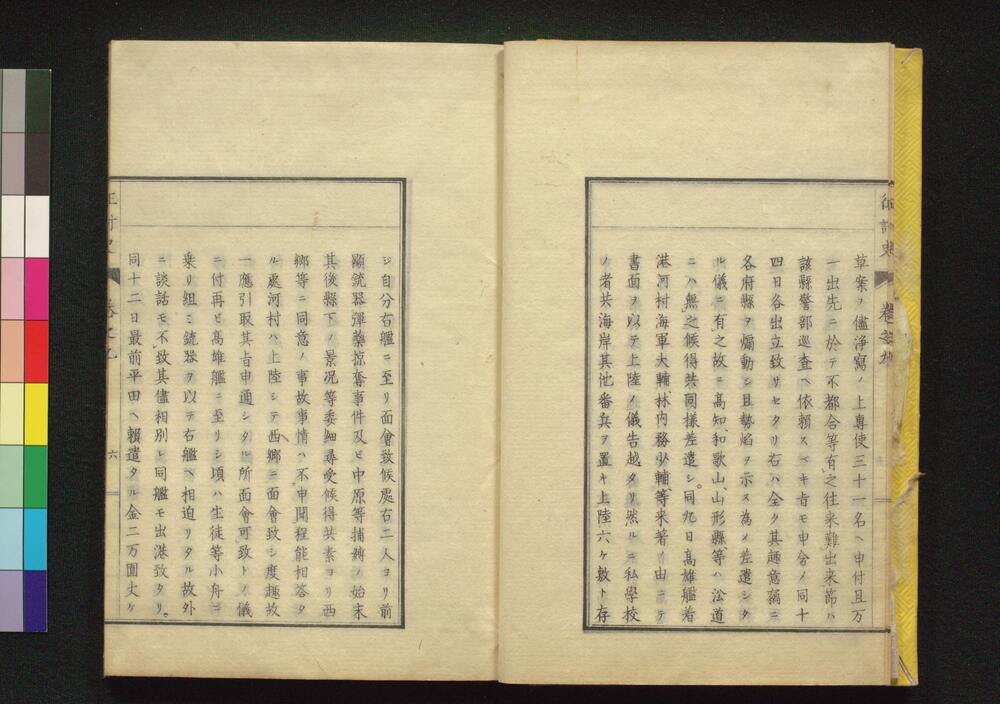 草案ヲ儘淨寫ノ上專使三十一名ヘ申付且万
一出先ニ於テ不都合等有之往来難出来節ハ
該縣警部巡査ヘ依頼スベキ旨モ申含メ同十
四日各出立致サセタリ右ハ全ク其趣意竊ニ
各府縣ヲ煽動シ且勢焔ヲ示ス為メ差遣シタ
ル儀ニ有之故ニ髙知、和歌山、山形縣等ハ沿道
ニハ無之候得共同様差遣シ。同九日髙雄艦着
港河村海軍大輔林内務少輔等来着ノ由ニテ
書面ヲ以テ上陸ノ儀告越タリ然ルニ私學校
ノ者共海岸其他番兵ヲ置キ上陸六ケ敷ト存
巻之九
シ自分右艦ニ至リ面會致候處右二人ヨリ前
顕銃器彈藥掠奪事件及ヒ中原等捕縛ノ始末
其後縣下ノ景況等委細尋受候得共素ヨリ西
郷等ニ同意ノ事故事情ハ不申聞程能相答タ
ル處河村ハ上陸シテ西郷ニ面會致シ度趣故
一應引取其旨申通シタル所面會可致トノ儀
ニ付再ヒ髙雄艦ニ至リシ頃ハ生徒等小舟ニ
乗リ組ミ銃器ヲ以テ右艦ヘ相迫リタル故外
ニ談話モ不致其儘相別レ同艦モ出港致タリ。
同十二日最前平田ヘ頼遣タル金二万圓丈ケ
巻之九
六